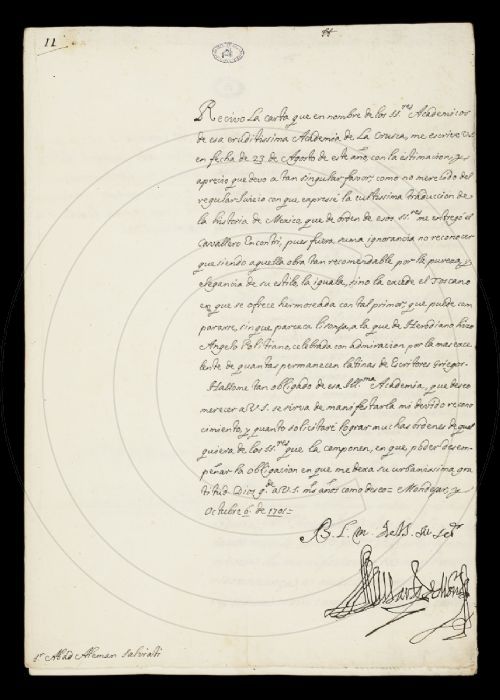 11
Recivo la carta que en nombre de los SS.res Academicos
de esa eruditissima Academia de La Crusca, me escrive V.S.
en fecha de 23 de Agosto de este año, con la estimacion, y
aprecio que devo a tan singular favor; como no merecedor del
regular Juicio con que expresè la cultissima traduccion de
la historia de Mexico, que de orden de esos SS.res me entregò el
Cavallero Encontri, pues fuera suma ignorancia no reconocer
que siendo aquella obra tan recomendable por la pureza, y
elegancia de su estilo, la iguala, sino la excede el Toscano
en que se ofrece hermoseada con tal primor, que puede com
pararse, sin que parezca lisonja, a la que de Herodiano hizo
Angelo Politiano, celebrada con admiracion por la mas exce
lente de quantas permanecen latinas de Escritores Griegos.
Hallome tan obligado de esa Ill.ma Academia, que deseo
merecer a V.S. se sirva de manifestarla mi devido recono
cimiento, y quanto solicitarè lograr muchas ordenes de qual
quiera de los SS.res que la componen, en que poder desem-
peñar la obligacion en que me dexa su urbanissima gra
titud. Dios g.de a V.S. m.s años como deseo = Mondejar, y
Octubre 6 de 1701 =
B. L. M. de V.S. su ser.or
S.r Abad Aleman Salviati